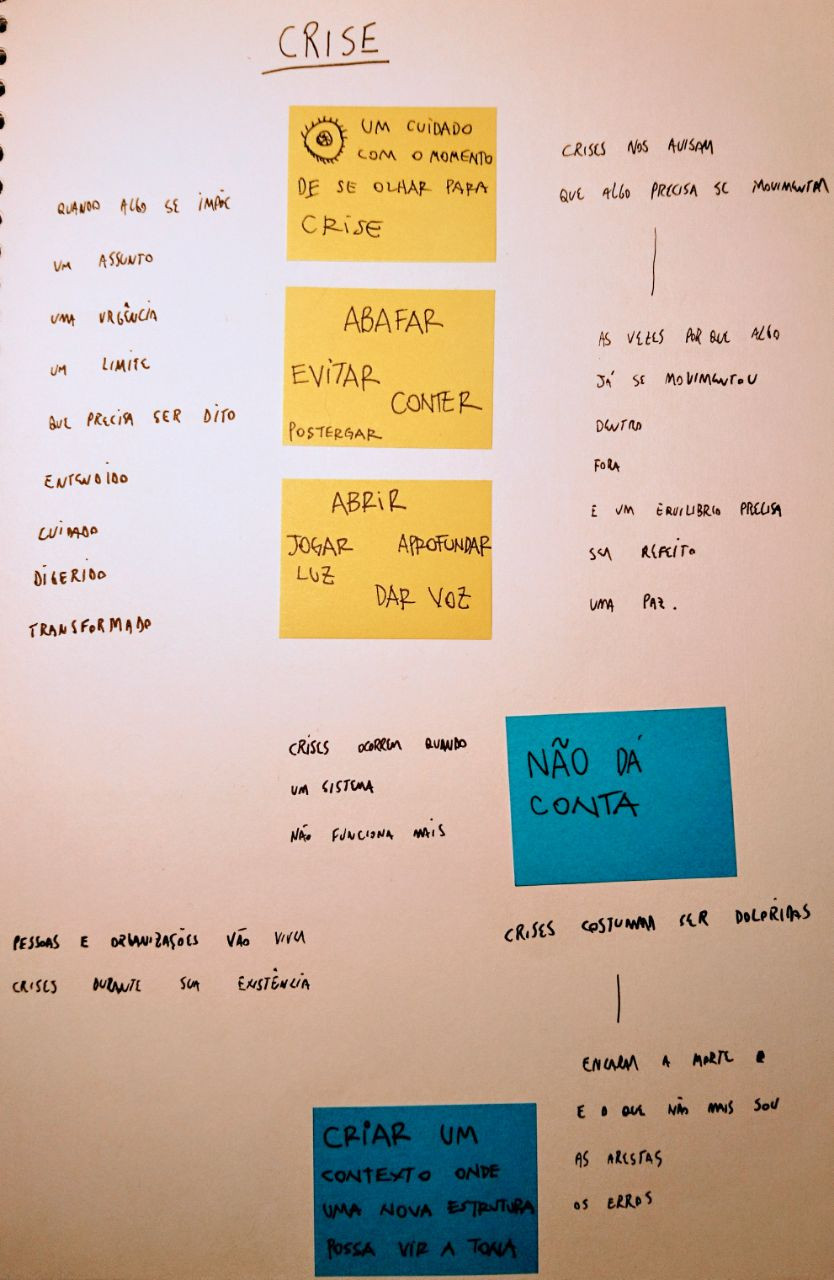 CRISE
UM CUIDADO
COM O MOMENTO
DE SE OLHAR PARA
CRISE
QUANDO ALGO SE IMPÕE
UM ASSUNTO
UMA URGÊNCIA
UM LIMITE
QUE PRECISA SER DITO
ENTENDIDO
CUIDADO
DIGERIDO
TRANSFORMADO
ABAFAR
EVITAR
CONTER
POSTERGAR
ABRIR
JOGAR APROFUNDAR
LUZ
DAR VOZ
CRISES NOS AVISAM
QUE ALGO PRECISA SE MOVIMENTAR
AS VEZES POR QUE ALGO
JÁ SE MOVIMENTOU
DENTRO
FORA
E UM EQUILIBRIO PRECISA
SER REFEITO
UMA PAZ.
CRISES OCORREM QUANDO
UM SISTEMA
NÃO FUNCIONA MAIS
NÃO DÁ
CONTA
PESSOAS E ORGANIZAÇÕES VÃO VIVER
CRISES DURANTE SUA EXISTÊNCIA
CRISES COSTUMAM SER DOLORIDAS
ENCARAR A MORTE
E O QUE NÃO MAIS SOU
AS ARESTAS
OS ERROS
CRIAR UM
CONTEXTO ONDE
UMA NOVA ESTRUTURA
POSSA VIR A TONA